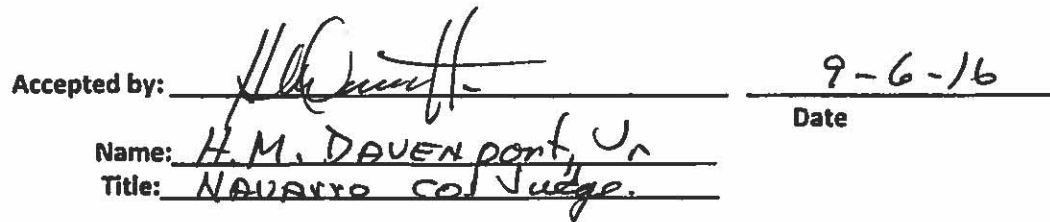 Accepted by: 9-6-16
Date
Name: H.M. DAVENport, Jr
Title: NAVARRO Co. Judge.